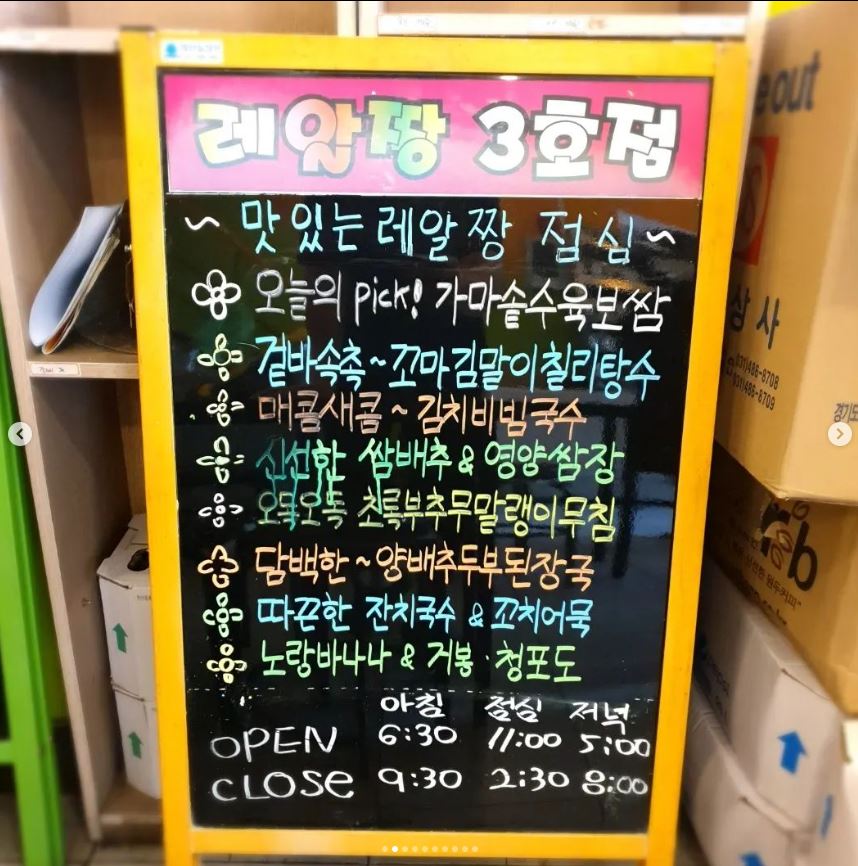 레알짱 3호점
~ 맛있는레알짱 점심~
오늘의 pick! 가마솥수육보쌈
겉바속촉~꼬마김말이칠리탕수
매콤새콤~김치비빔국수
신선한 쌈배추 & 영양쌈장
오독오독 초록부추무말랭이무침
담백한~양배추두부된장국
따끈한 잔치국수 & 꼬치어묵
노랑바나나 & 거봉·청포도
아침 점심 저녁
OPEN 6:30 11:00 5:00
CLOSE 9:30 2:30 8:00
eout
상사
031)486-8708
031)486-8709
경기도